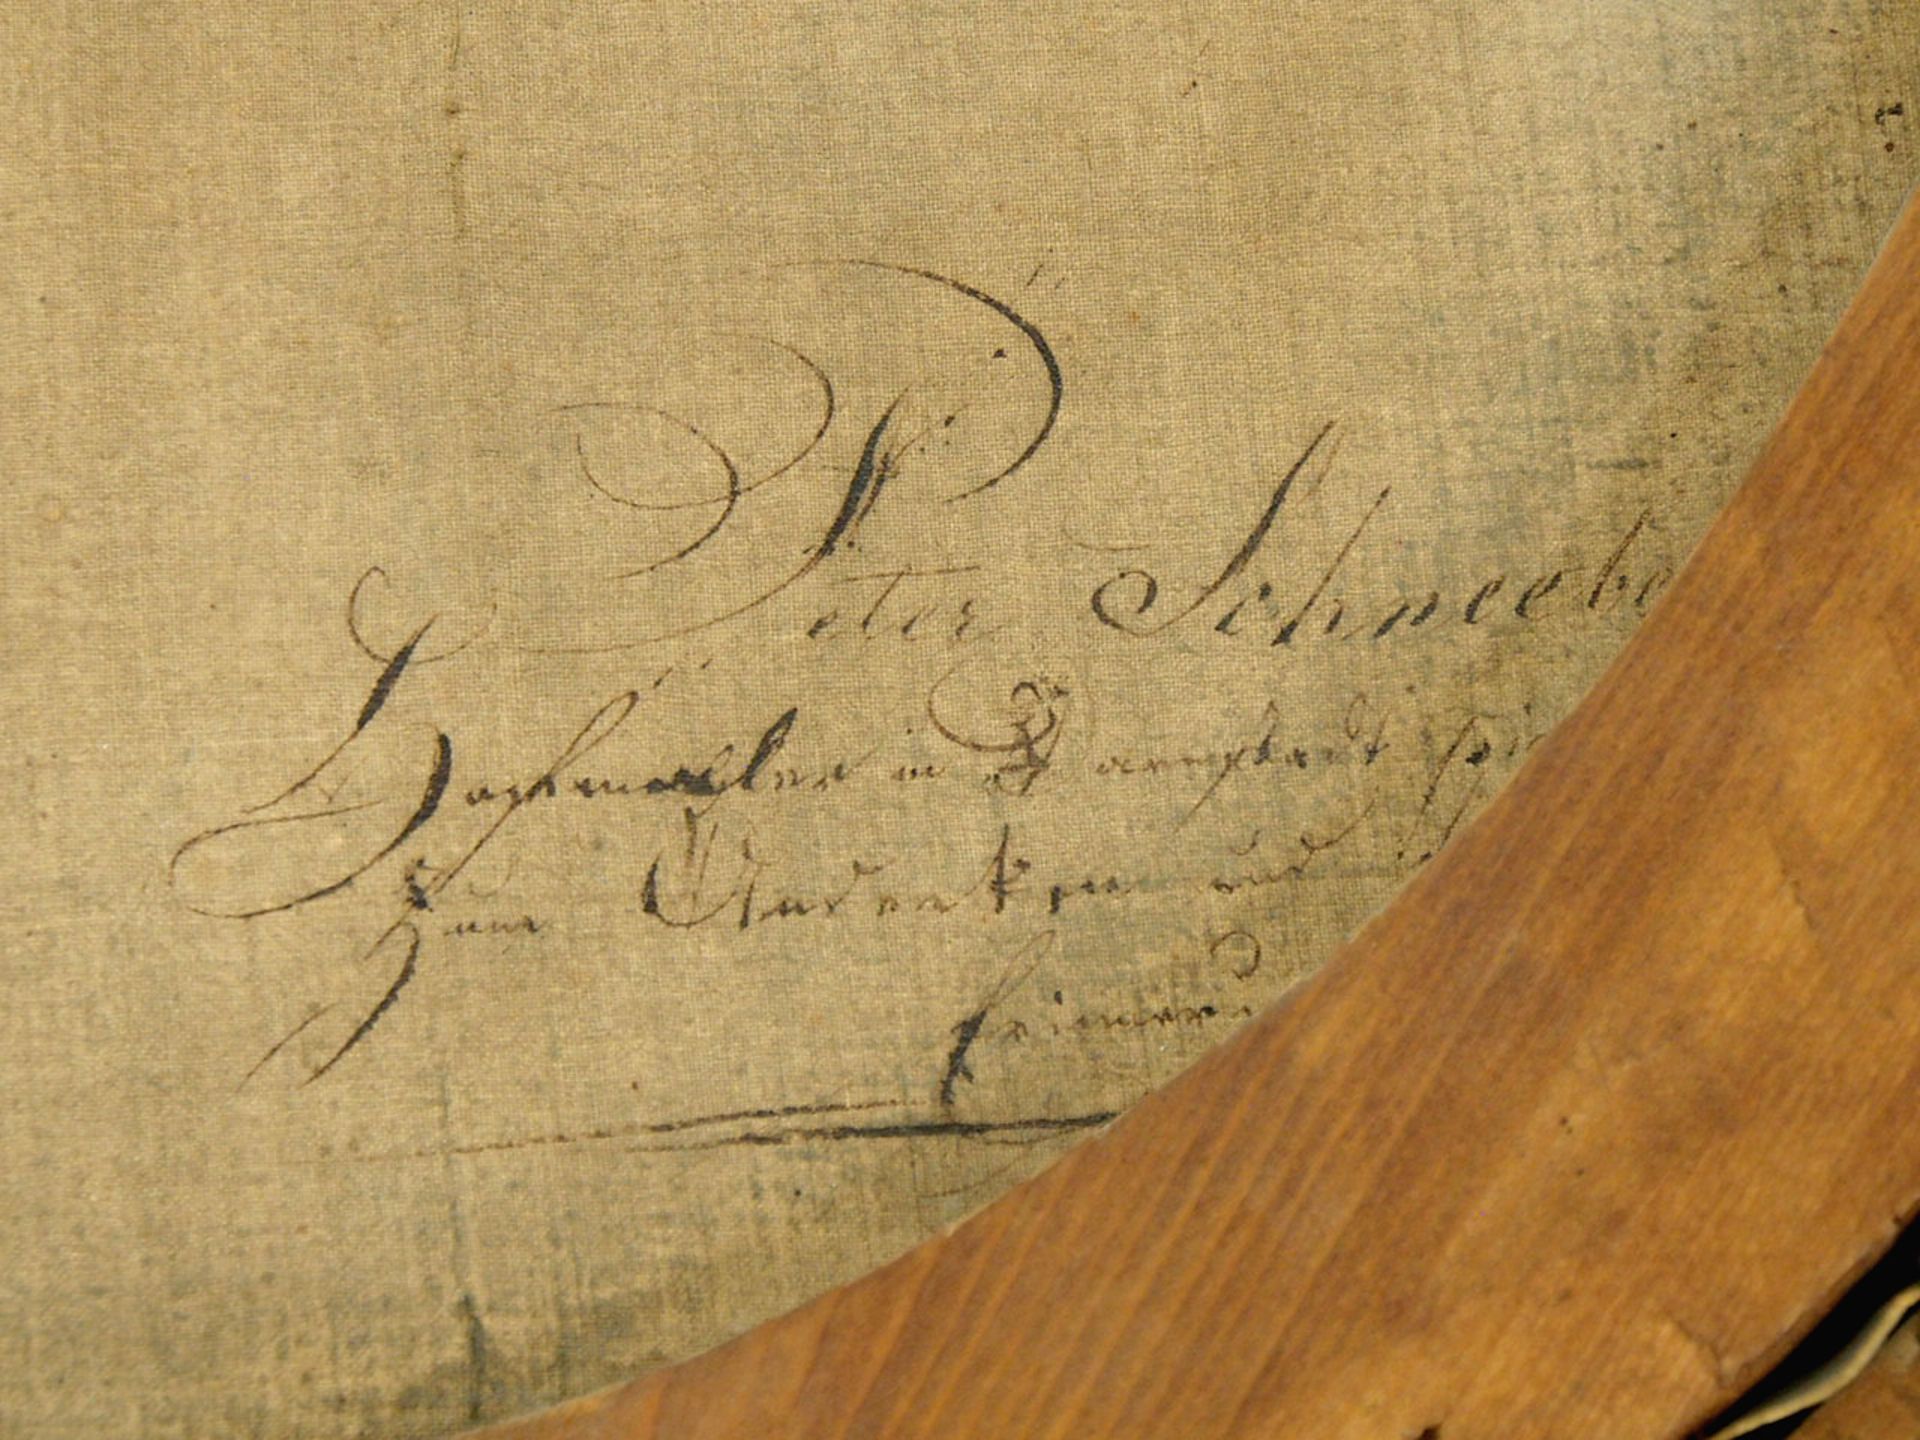 Peter Schneebe
Hofmahler in Darmstadt
Zum Andenken und